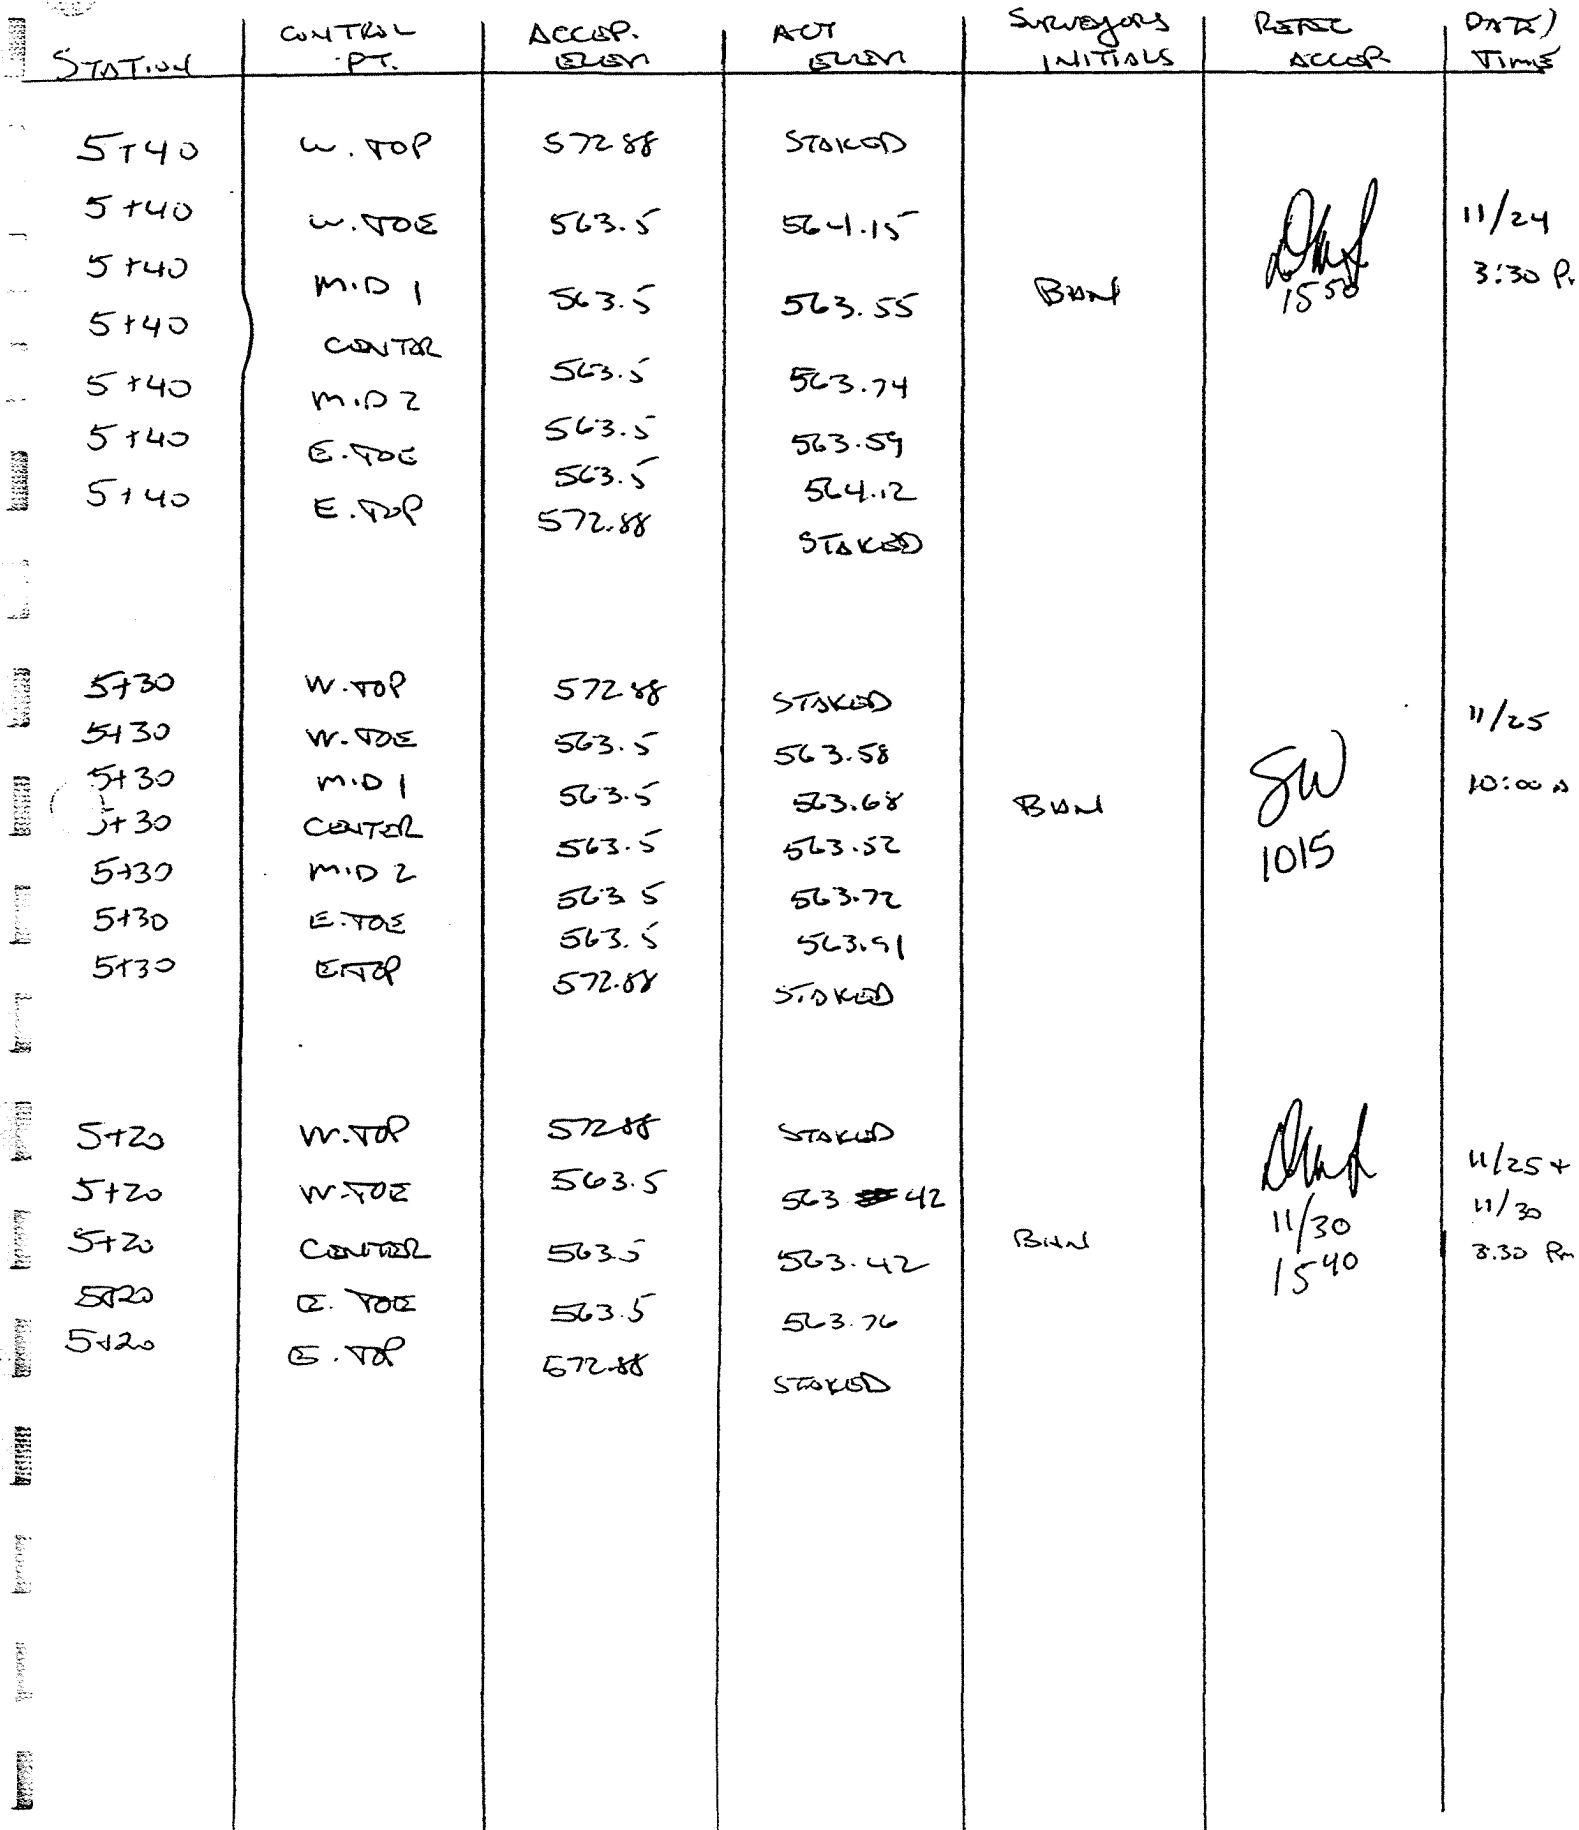 STATION | CONTROL PT. | ACCEP. ELEV | ACT ELEV | SURVEYORS INITIALS | RETEC ACCEP | DATE/ TIME
5+40 | W. TOP | 572.88 | STAKED
5+40 | W. TOE | 563.5 | 564.15 | 11/24
5+40 | MID 1 | 563.5 | 563.55 | BHN | 1550 | 3:30 P
5+40 | CENTER | 563.5 | 563.74
5+40 | MID 2 | 563.5 | 563.59
5+40 | E. TOE | 563.5 | 564.12
5+40 | E. TOP | 572.88 | STAKED
5+30 | W. TOP | 572.88 | STAKED | 11/25
5+30 | W. TOE | 563.5 | 563.58 | SW | 10:00 A
5+30 | MID 1 | 563.5 | 563.68 | BHN | 1015
5+30 | CENTER | 563.5 | 563.52
5+30 | MID 2 | 563.5 | 563.72
5+30 | E. TOE | 563.5 | 563.91
5+30 | E. TOP | 572.88 | STAKED
5+20 | W. TOP | 572.88 | STAKED | 11/25 +
5+20 | W. TOE | 563.5 | 563 42 | 11/30 | 11/30
5+20 | CENTER | 563.5 | 563.42 | BHN | 1540 | 3:30 Pm
5+20 | E. TOE | 563.5 | 563.76
5+20 | E. TOP | 572.88 | STAKED